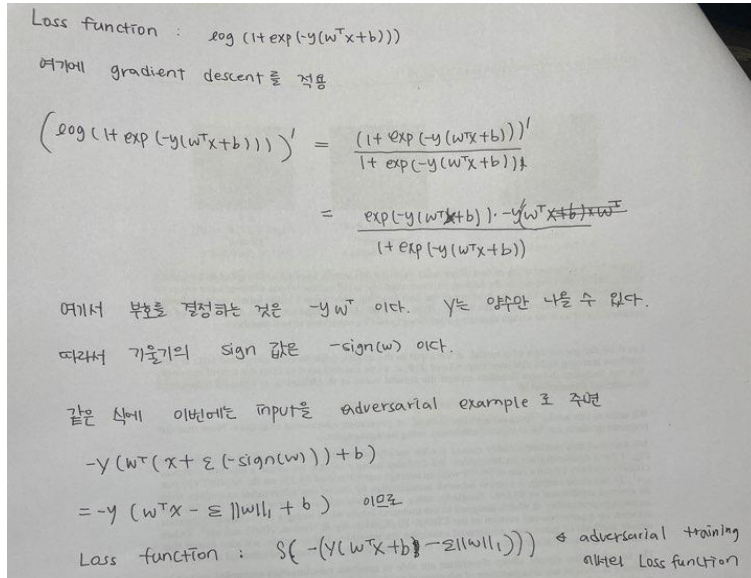 Loss function : log (1+exp(-y(wᵀx+b)))
여기에 gradient descent를 적용
(log(1+exp(-y(wᵀx+b))))' = (1+exp(-y(wᵀx+b)))' / 1+exp(-y(wᵀx+b))
= exp(-y(wᵀx+b)) · -y(wᵀ / 1+exp(-y(wᵀx+b))
여기서 부호를 결정하는 것은 -ywᵀ 이다. y는 양수만 나올 수 있다.
따라서 기울기의 sign 값은 -sign(w) 이다.
같은 식에 이번에는 input을 adversarial example 로 주면
-y(wᵀ(x+ε(-sign(w)))+b)
= -y (wᵀx - ε||w||₁ + b) 이므로
Loss function : S( -(y(wᵀx+b) - ε||w||₁))) adversarial training
에서의 Loss function